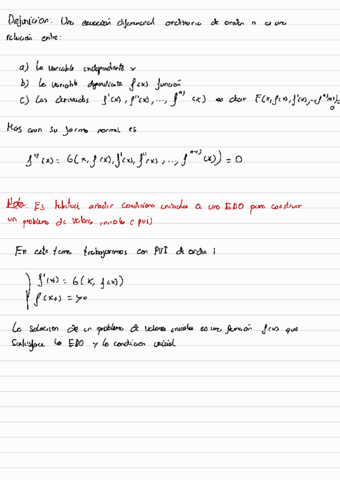 Definicion: Una ecuación diferencial ordinaria de orden n es una
relación entre:
a) La variable independiente x
b) La variable dependiente f(x) función
c) Las derivadas f'(x), f''(x), ..., fⁿ⁾(x) es decir F(x, f(x), f'(x), ..., fⁿ⁾(x)) = 0
Mas aun su forma normal es
fⁿ⁾(x) = G(x, f(x), f'(x), f''(x), ..., fⁿ⁻¹⁾(x)) = 0
Nota: Es habitual añadir condiciones iniciales a una EDO para construir
un problema de valores iniciales (PVI)
En este tema trabajaremos con PVI de orden 1
f'(x) = G(x, f(x))
f(x₀) = y₀
La solucion de un problema de valores iniciales es una función f(x) que
satisface la EDO y la condicion inicial